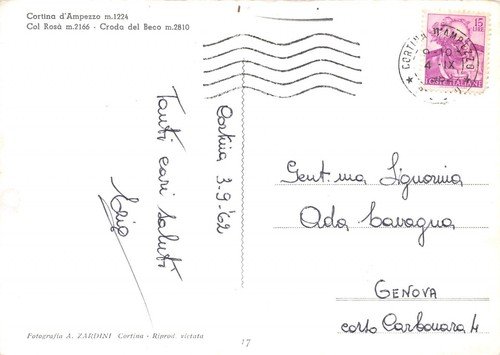 Cortina d'Ampezzo m.1224
Col Rosà m.2166 - Croda del Beco m.2810
15
LIRE
CORTINA D'AMPEZZO
4 IX
Cortina 3-9-'62
Tanti cari saluti
Gent.ma Signorina
Ada Cavagna
GENOVA
corso Carbonara 4
Fotografia A. ZARDINI Cortina - Riprod. vietata
17